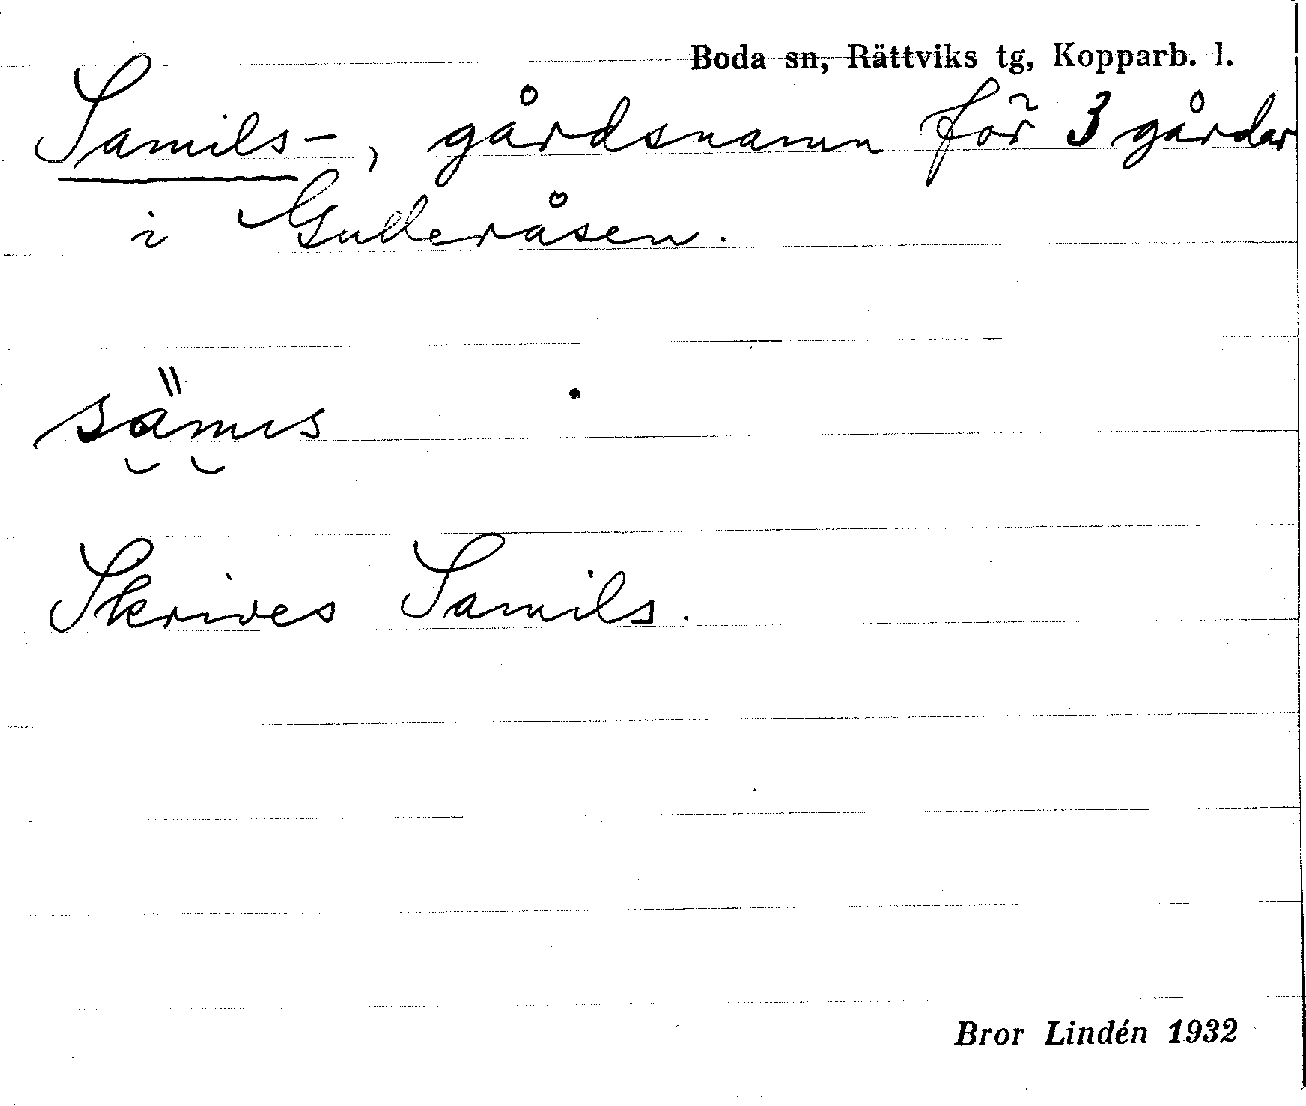 Boda sn, Rättviks tg, Kopparb. l.
Samils-, gårdsnamn för 3 gårdar
i Gulleråsen.
sämıs
Skrives Samils.
Bror Lindén 1932